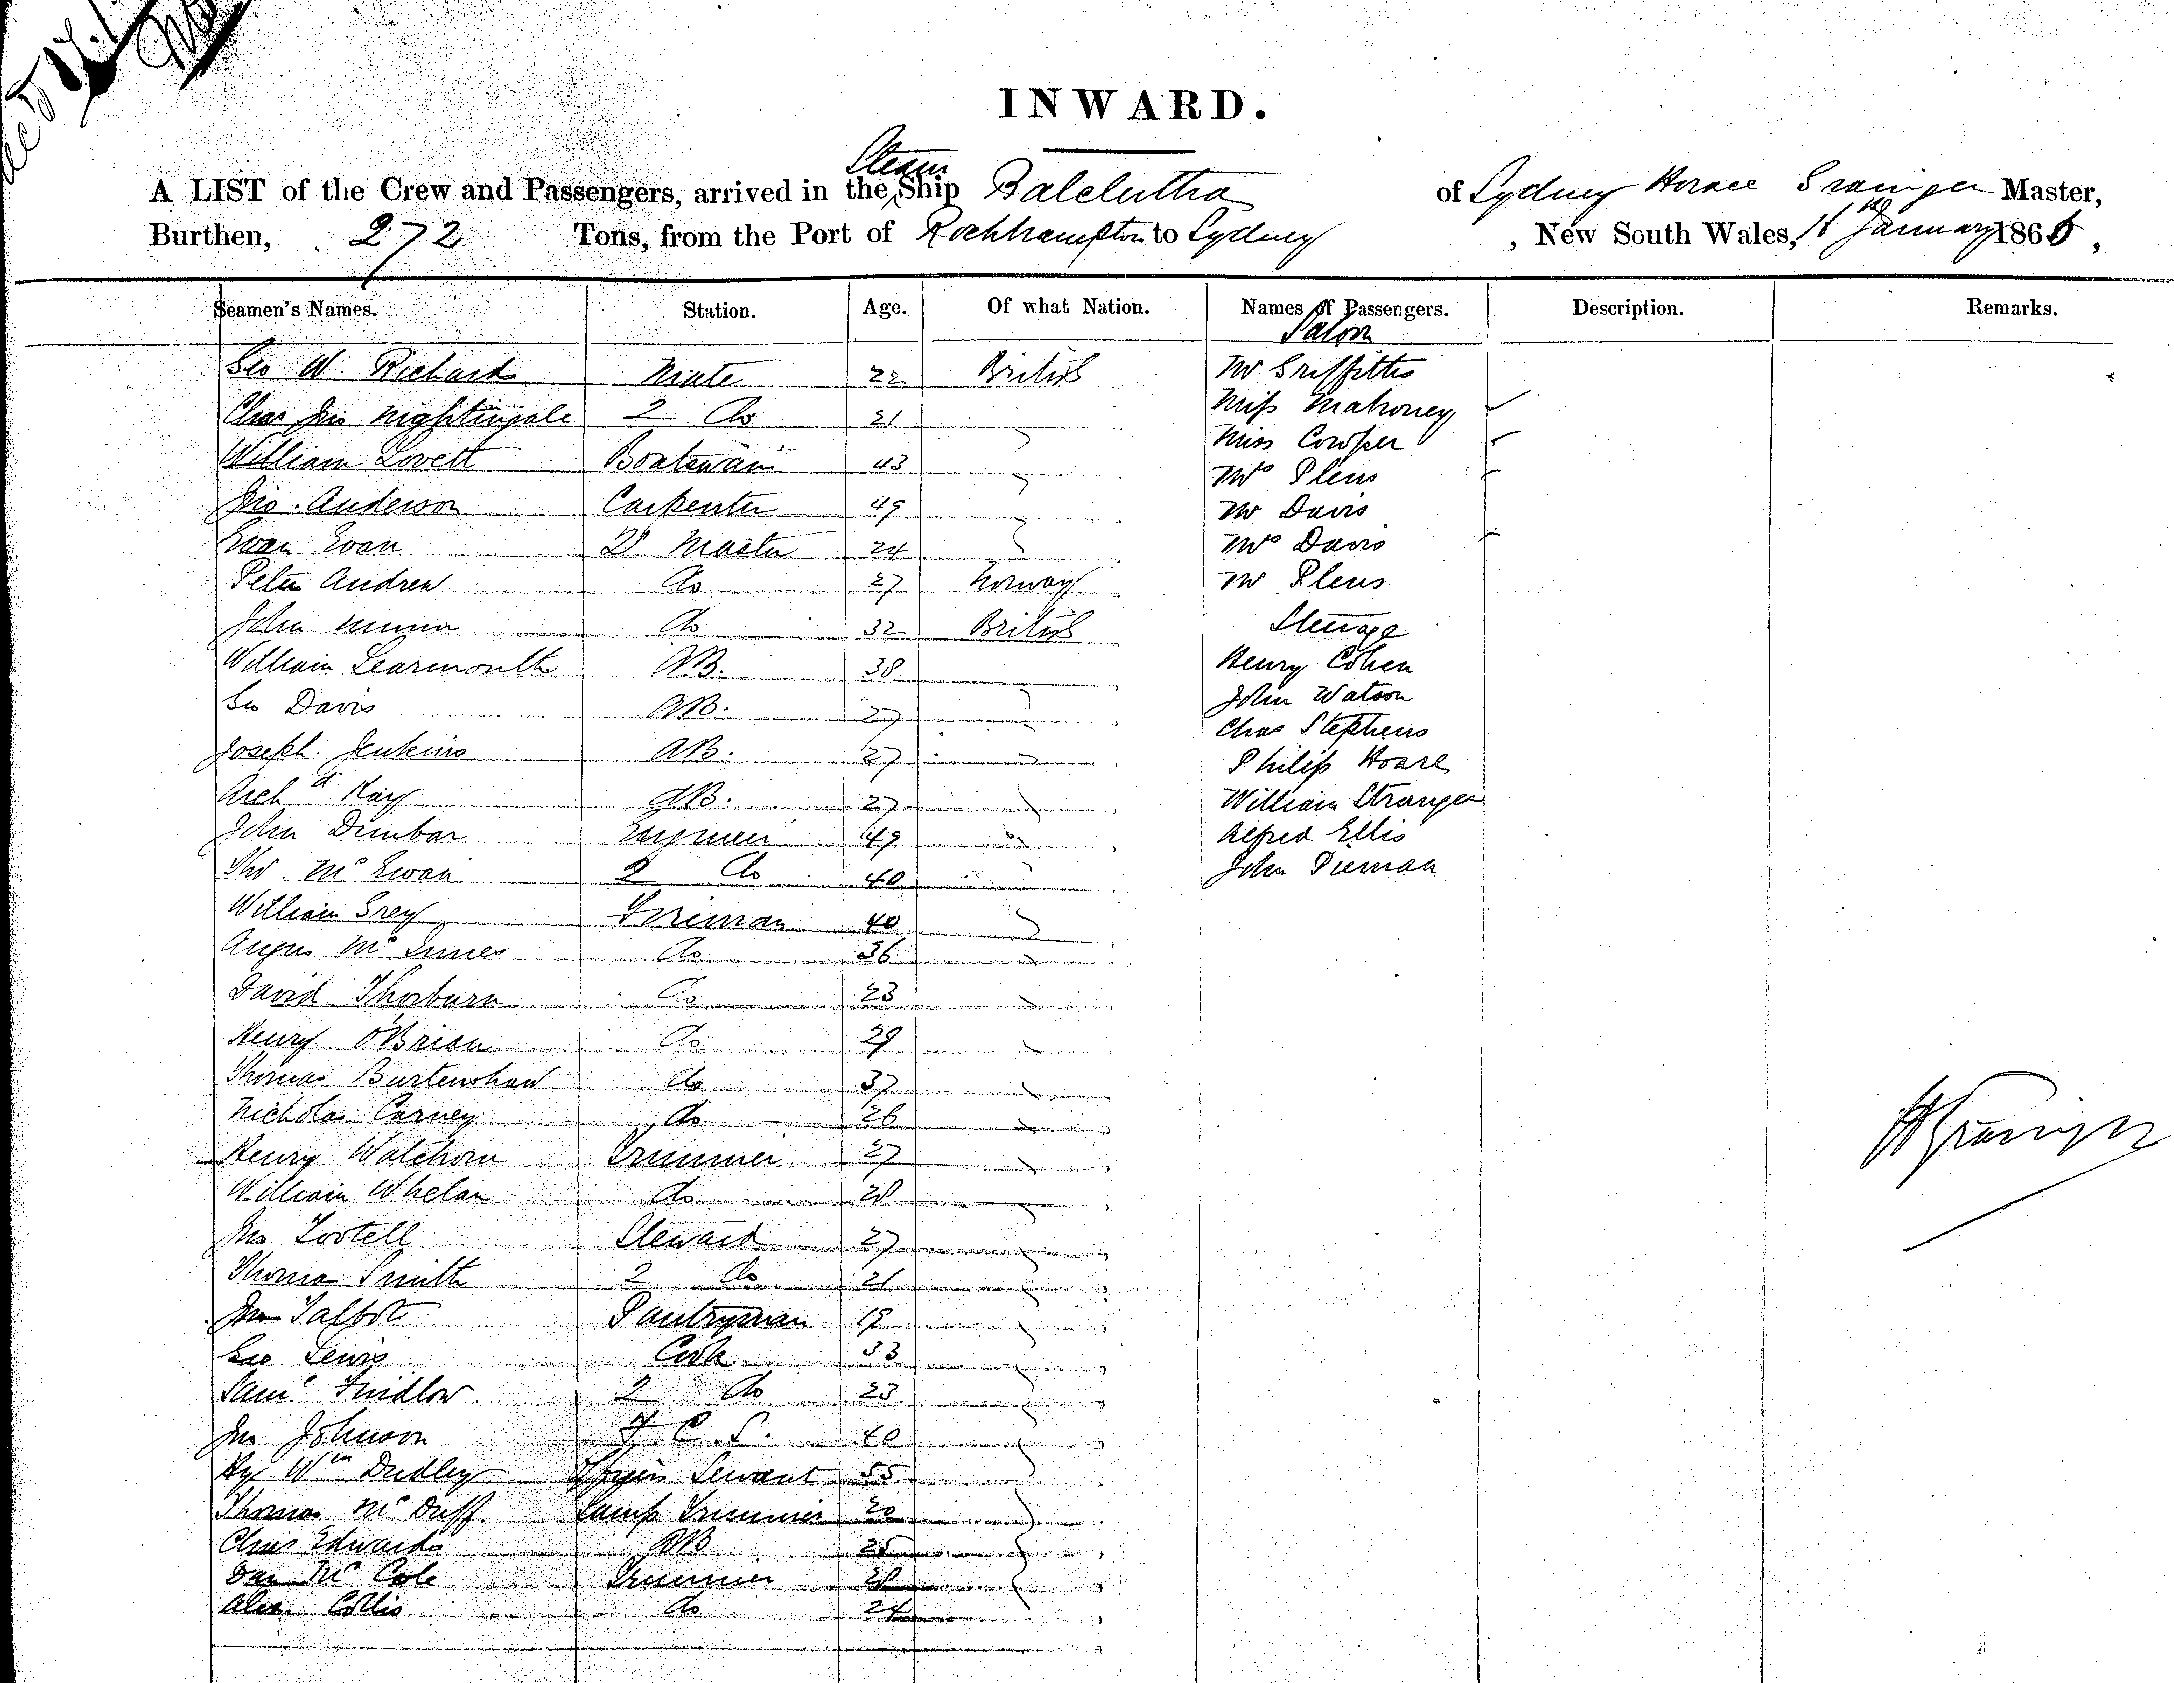 INWARD.
Steam
A LIST of the Crew and Passengers, arrived in the Ship Balclutha of Sydney Horace Grainger Master,
Burthen, 272 Tons, from the Port of Rockhampton to Sydney, New South Wales, January 186
Seamen's Names. Station. Age. Of what Nation. Names of Passengers. Description. Remarks.
Saloon
Geo W. Richards Mate 22 British Mr Griffiths
Chas Jno Nightingale 2 Do 21 Miss Mahoney
William Lovett Boatswain 43 Miss Cowper
Jno. Anderson Carpenter 49 Mrs Plews
Evan Evan Q Master 24 Mr Davis
Mrs Davis
Peter Andrew Do 27 Norway Mr Plews
John Do 32 British Steerage
William Learmonth AB. 38 Henry Cohen
Geo Davis AB. 27 John Watson
Joseph Jenkins AB. 27 Chas Stephens
Philip Hoare
Archd Kay AB. 27 William Stranger
John Dunbar Engineer 49 Alfred Ellis
Thos McEwan 2 Do 40 John
William Grey Fireman 40
Angus McInnes Do 36
David Thorburn Do 23
Henry O'Brien Do 29
Thomas Burtenshaw Do 37
Nicholas Carney Do 26
Henry Watchorn Trimmer 27
William Whelan Do 28
Jno Tootell Steward 27
Thomas Smith 2 Do 21
Jno Talbot Pantryman 19
Geo Lewis Cook 33
Saml 2 Do 23
Jno Johnson F C S. 40
Hy Wm Dudley Servant 55
Thomas McDuff Lamp Trimmer 20
Chas Edwards AB 25
Dan McCole Trimmer 28
Alex. Collis Do 24
SHGrainger